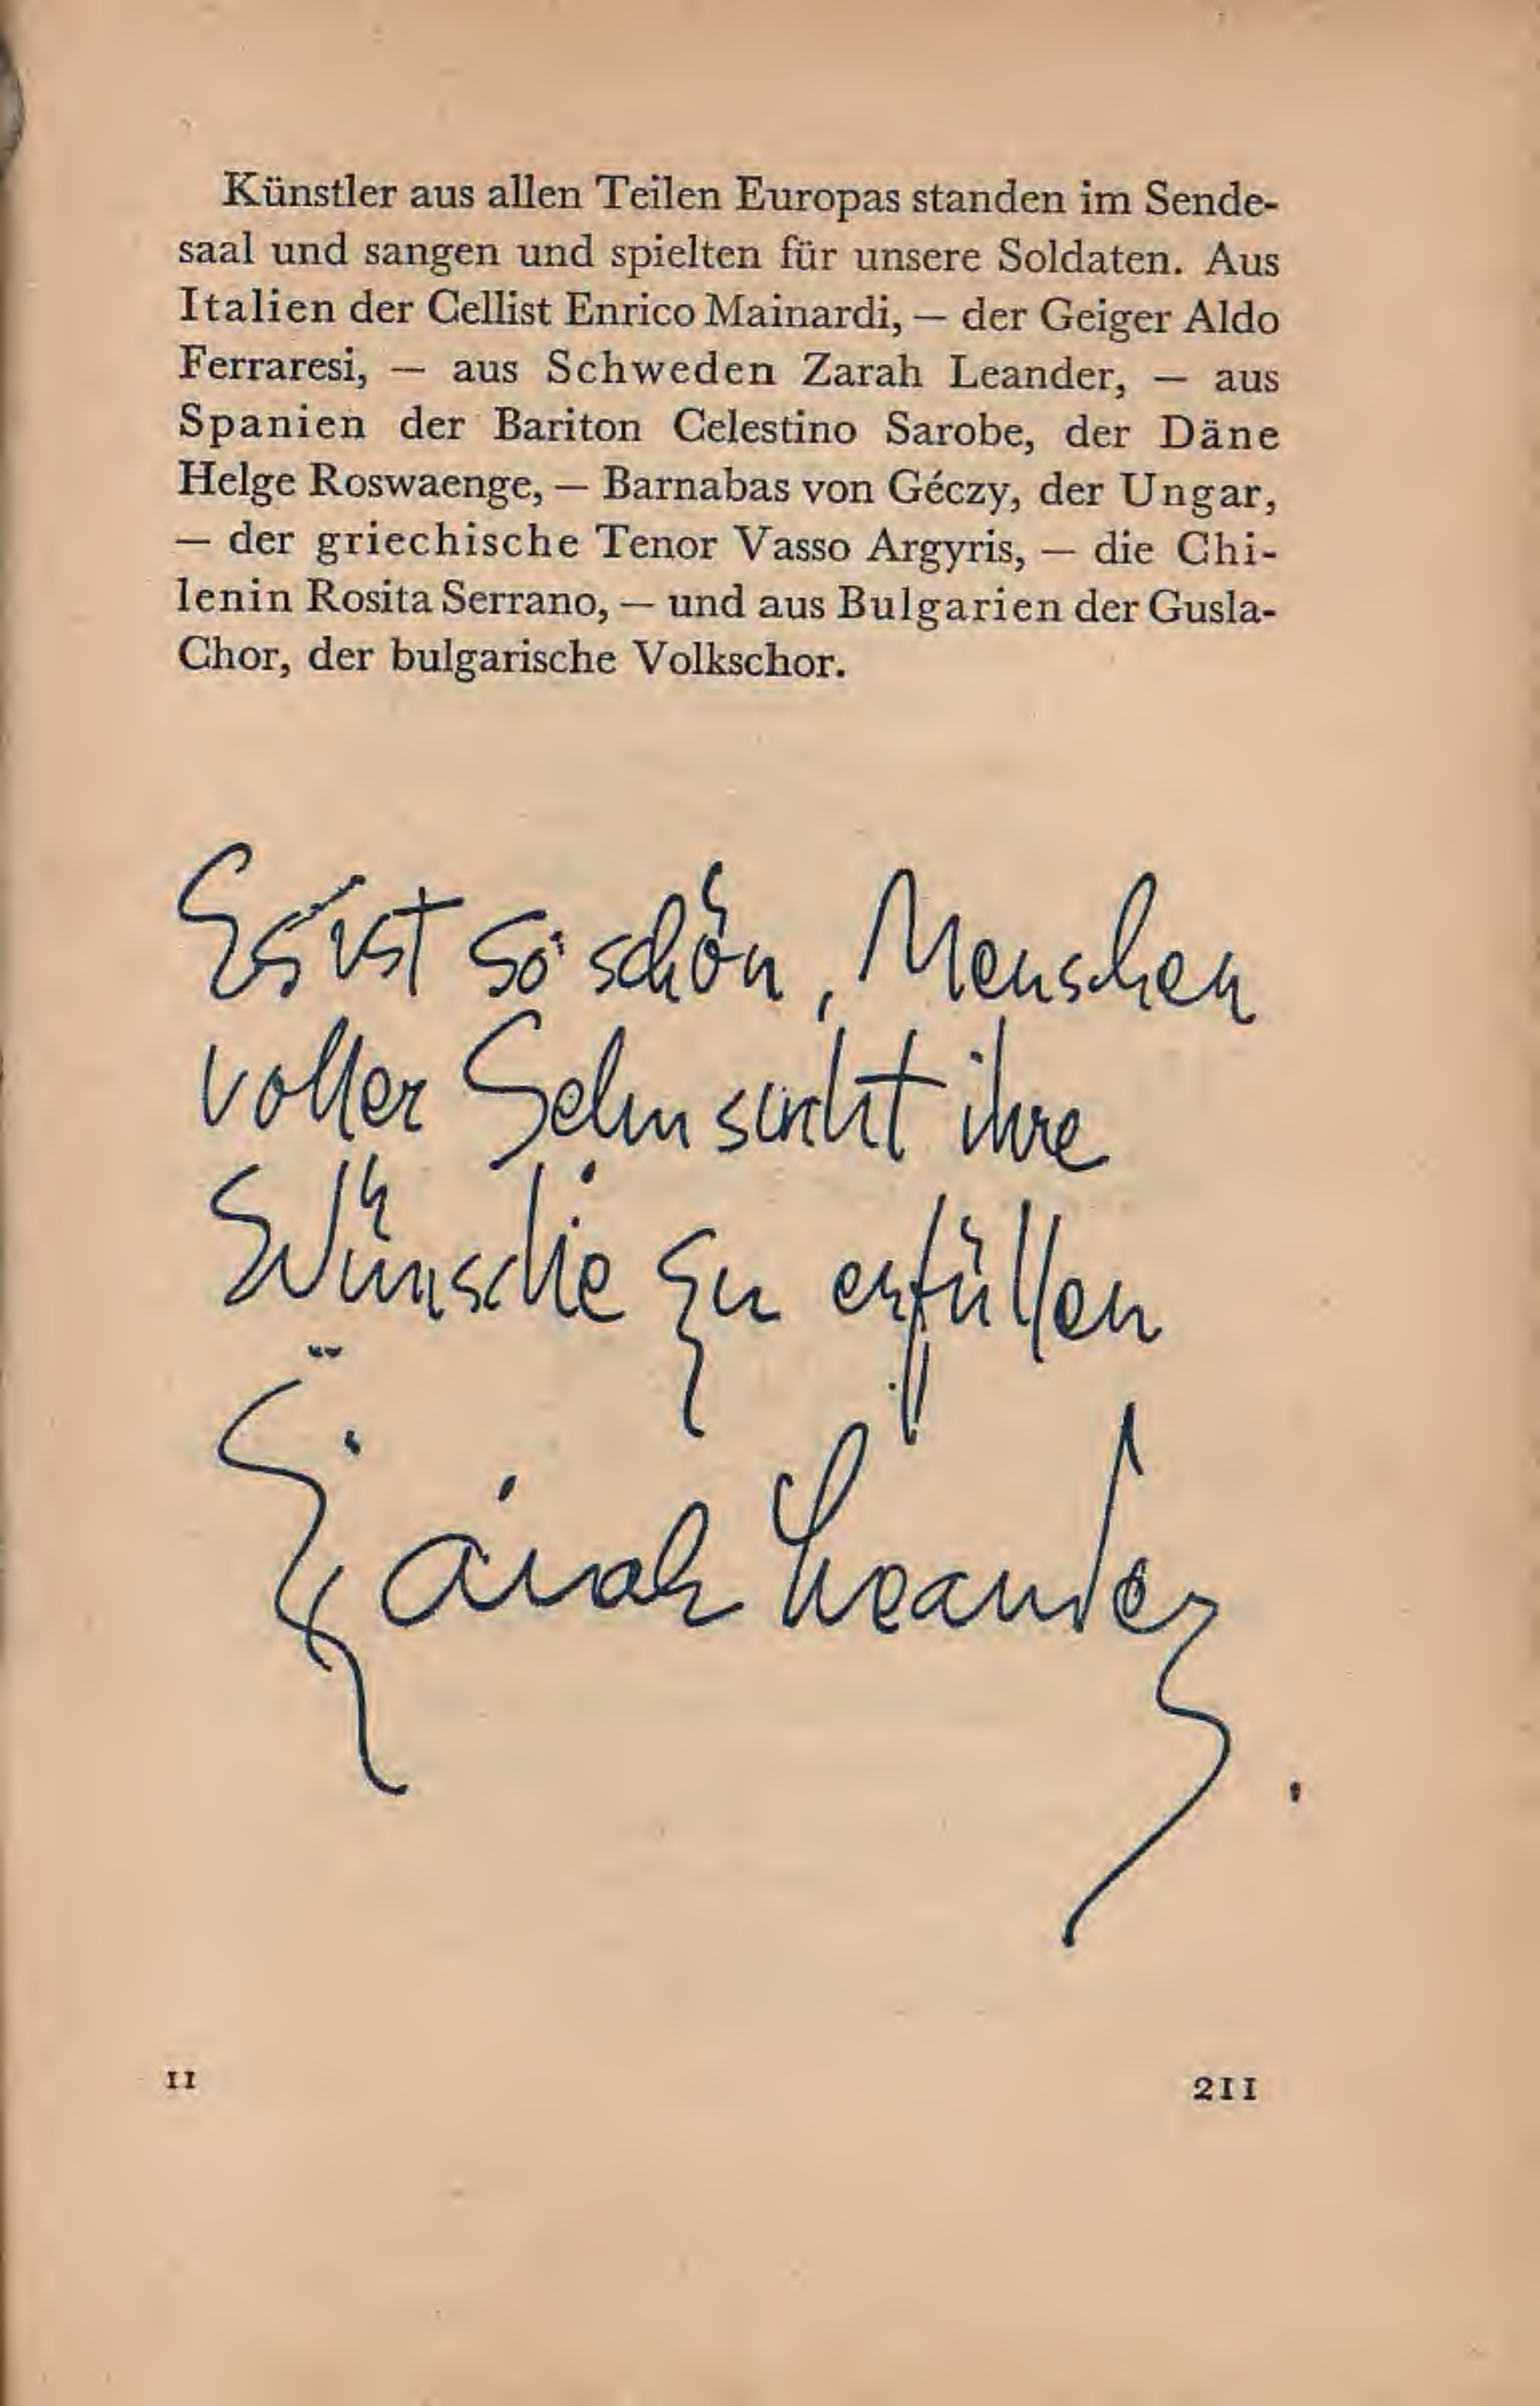 Künstler aus allen Teilen Europas standen im Sende-
saal und sangen und spielten für unsere Soldaten. Aus
Italien der Cellist Enrico Mainardi, — der Geiger Aldo
Ferraresi, — aus Schweden Zarah Leander, — aus
Spanien der Bariton Celestino Sarobe, der Däne
Helge Roswaenge, — Barnabas von Géczy, der Ungar,
— der griechische Tenor Vasso Argyris, — die Chi-
lenin Rosita Serrano, — und aus Bulgarien der Gusla-
Chor, der bulgarische Volkschor.
Es ist so schön, Menschen
voller Sehnsucht ihre
Wünsche zu erfüllen
Zarah Leander.
11
211